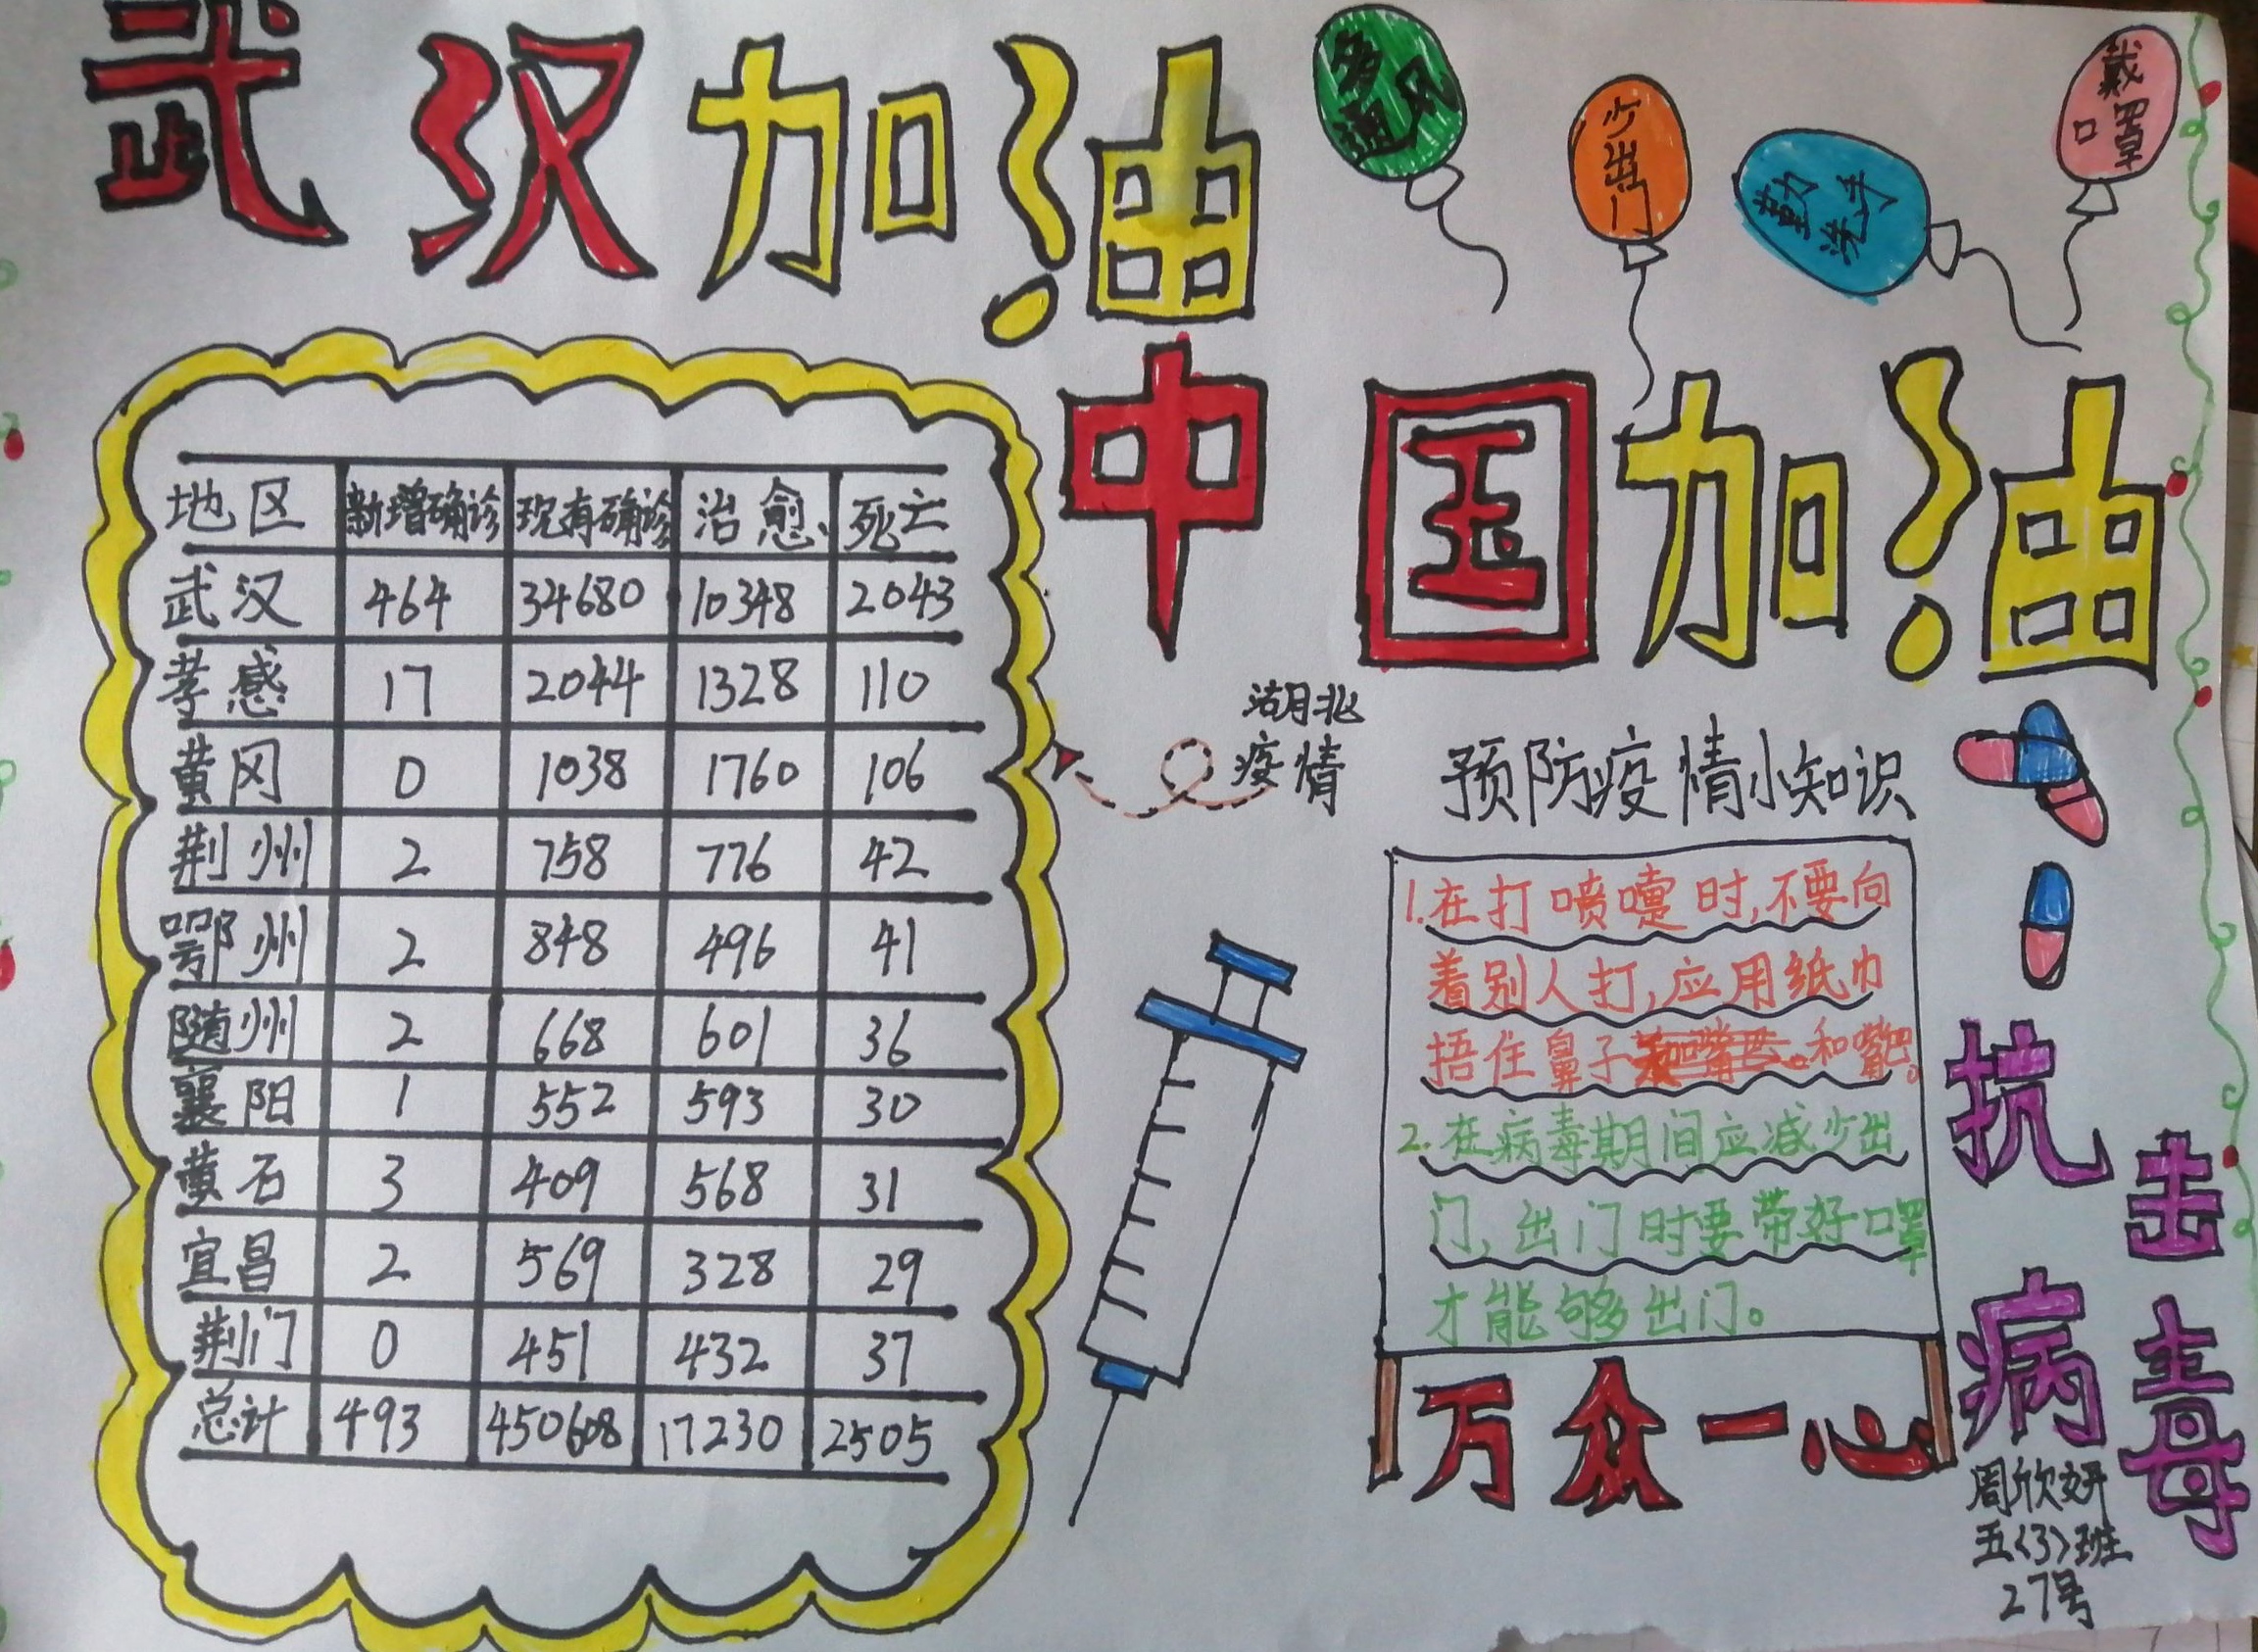 武汉加油
多通风
少出门
勤洗手
戴口罩
中国加油
地区 新增确诊 现有确诊 治愈 死亡
武汉 464 34680 10348 2043
孝感 17 2044 1328 110
黄冈 0 1038 1760 106
荆州 2 758 776 42
鄂州 2 848 496 41
随州 2 668 601 36
襄阳 1 552 593 30
黄石 3 409 568 31
宜昌 2 569 328 29
荆门 0 451 432 37
总计 493 450608 17230 2505
湖北
疫情
预防疫情小知识
1.在打喷嚏时,不要向
着别人打,应用纸巾
捂住鼻子和嘴巴。
2.在病毒期间应减少出
门,出门时要带好口罩
才能够出门。
抗击病毒
万众一心
周欣妍
五(3)班
27号